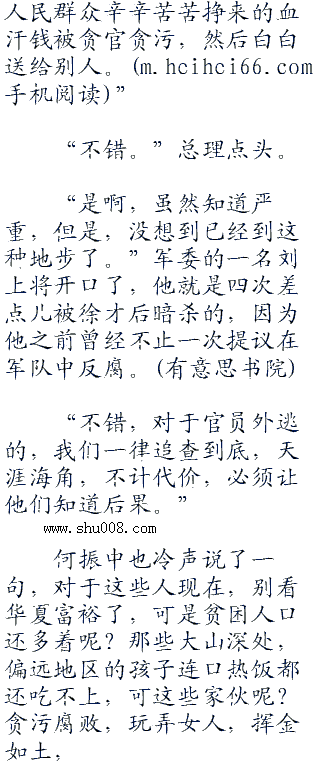 人民群众辛辛苦苦挣来的血
汗钱被贪官贪污，然后白白
送给别人。(m.hcihci66.com
手机阅读)”
“不错。”总理点头。
“是啊，虽然知道严
重，但是，没想到已经到这
种地步了。”军委的一名刘
上将开口了，他就是四次差
点儿被徐才后暗杀的，因为
他之前曾经不止一次提议在
军队中反腐。(有意思书院)
“不错，对于官员外逃
的，我们一律追查到底，天
涯海角，不计代价，必须让
他们知道后果。”
www.shu008.com
何振中也冷声说了一
句，对于这些人现在，别看
华夏富裕了，可是贫困人口
还多着呢？那些大山深处，
偏远地区的孩子连口热饭都
还吃不上，可这些家伙呢？
贪污腐败，玩弄女人，挥金
如土，